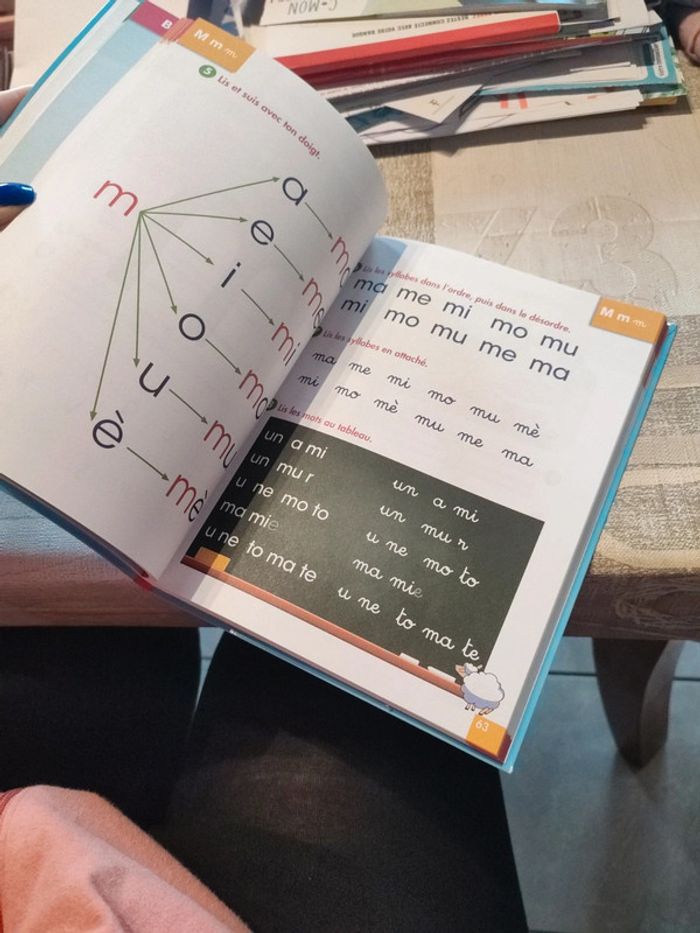 C-MON
B
M m m
5 Lis et suis avec ton doigt.
m
a
e
i
o
u
è
ma
me
mi
mo
mu
mè
M m m
Lis les syllabes dans l'ordre, puis dans le désordre.
ma me mi mo mu
mi mo mu me ma
Lis les syllabes en attaché.
ma me mi mo mu mè
mi mo mè mu me ma
Lis les mots au tableau.
un a mi un a mi
un mu r un mu r
u ne mo to u ne mo to
ma mie ma mie
u ne to ma te u ne to ma te
63